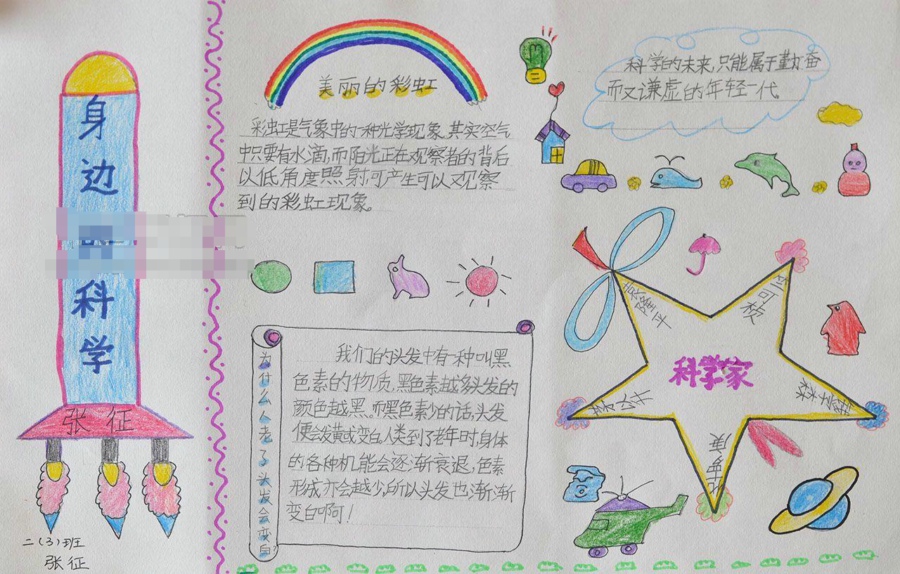 身边
科学
张征
二(3)班
张征
美丽的彩虹
彩虹是气象中的一种光学现象。其实空气
中只要有水滴,而阳光正在观察者的背后
以低角度照射,可产生可以观察
到的彩虹现象。
科学的未来,只能属于勤奋
而又谦虚的年轻一代
为什么人老了头发会变白?
我们的头发中有一种叫黑
色素的物质,黑色素越多头发的
颜色越黑,而黑色素少的话,头发
便会发黄或变白。人类到了老年时,身体
的各种机能会逐渐衰退,色素
形成亦会越少,所以头发也渐渐
变白啊!
科学家
袁隆平